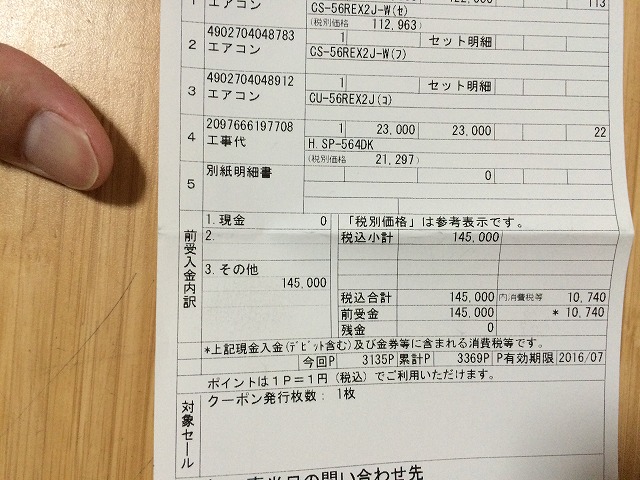 1 エアコン 122,000 113
CS-56REX2J-W(ｾ)
(税別価格 112,963)
2 4902704048783 1 セット明細
エアコン CS-56REX2J-W(ﾌ)
3 4902704048912 1 セット明細
エアコン CU-56REX2J(ｺ)
4 2097666197708 1 23,000 23,000 22
工事代 H.SP-564DK
(税別価格 21,297)
5 別紙明細書 0
前受入金内訳
1.現金 0 「税別価格」は参考表示です。
2. 税込小計 145,000
3.その他
145,000
税込合計 145,000 内消費税等 10,740
前受金 145,000 * 10,740
残金 0
*上記現金入金(ﾃﾞﾋﾞｯﾄ含む)及び金券等に含まれる消費税等です。
今回P 3135P 累計P 3369P P有効期限 2016/07
ポイントは1P=1円(税込)でご利用いただけます。
対象セール
クーポン発行枚数: 1枚
の問い合わせ先